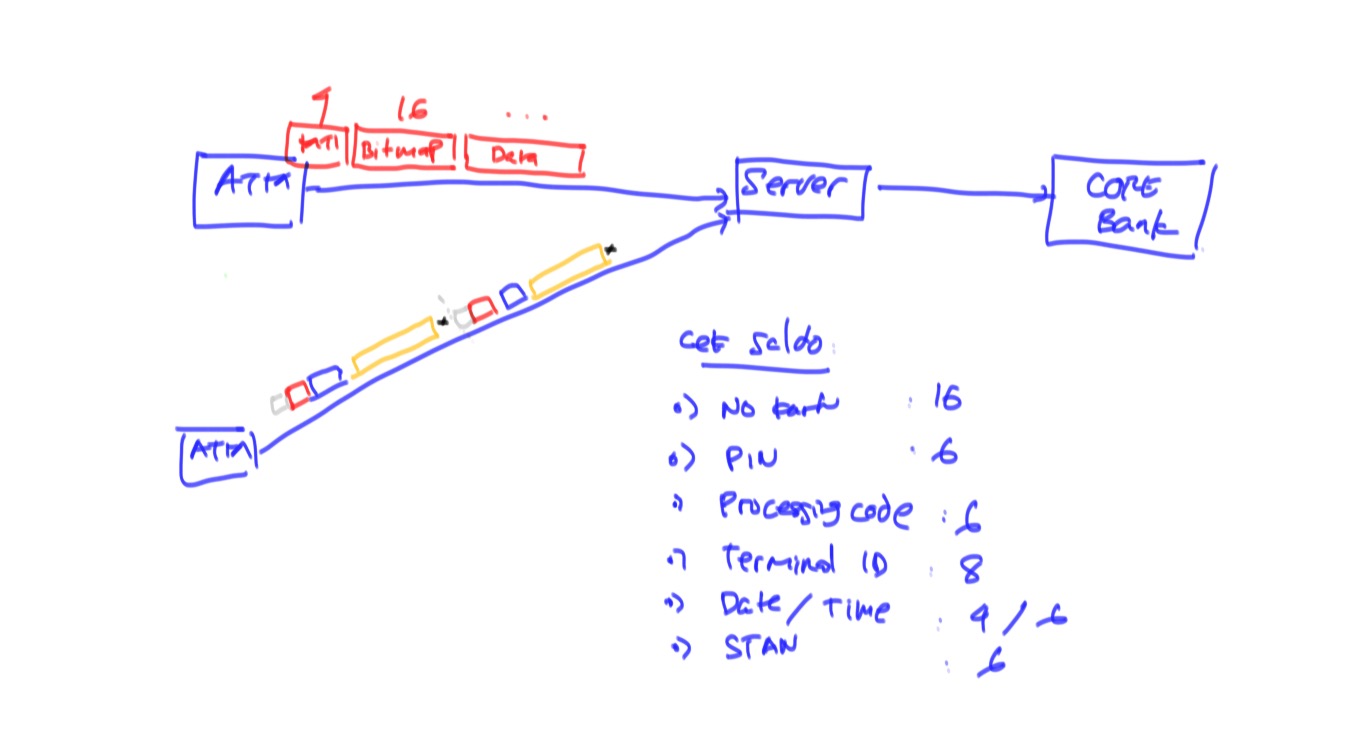 4 16 ...
MTI Bitmap Data
ATM
Server
CORE
Bank
ATM
cek saldo :
•) No kartu : 16
•) PIN : 6
•) Processing code : 6
•) Terminal ID : 8
•) Date / Time : 4 / 6
•) STAN : 6